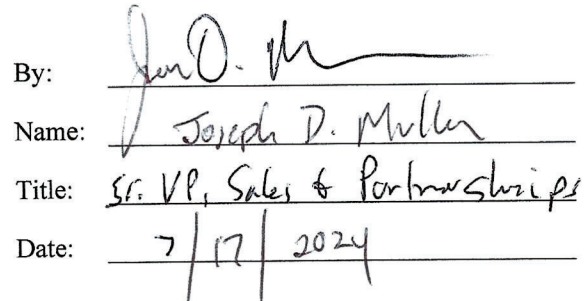 By:
Name: Joseph D. Mullen
Title: Sr. VP, Sales & Partnerships
Date: 7/17/2024